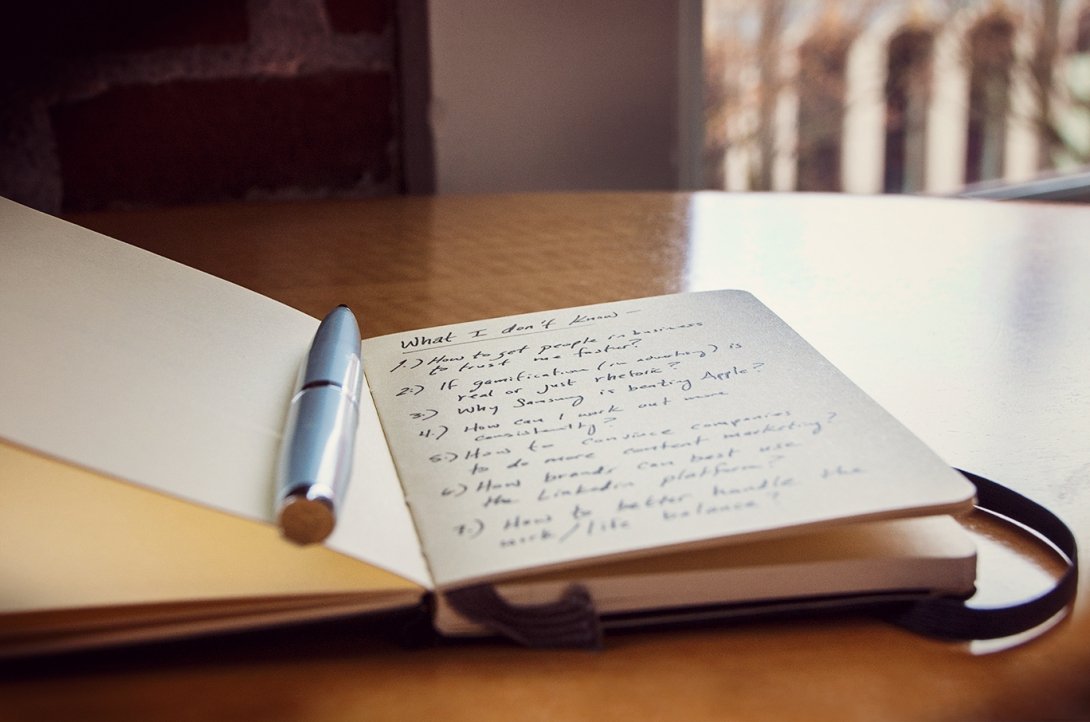 What I don't know -
1.) How to get people in business
to trust me faster?
2.) If gamification (in advertising) is
real or just rhetoric?
3.) Why Samsung is beating Apple?
4.) How can I work out more
consistently?
5.) How to convince companies
to do more content marketing?
6.) How brands can best use
the LinkedIn platform?
7.) How to better handle the
work/life balance?